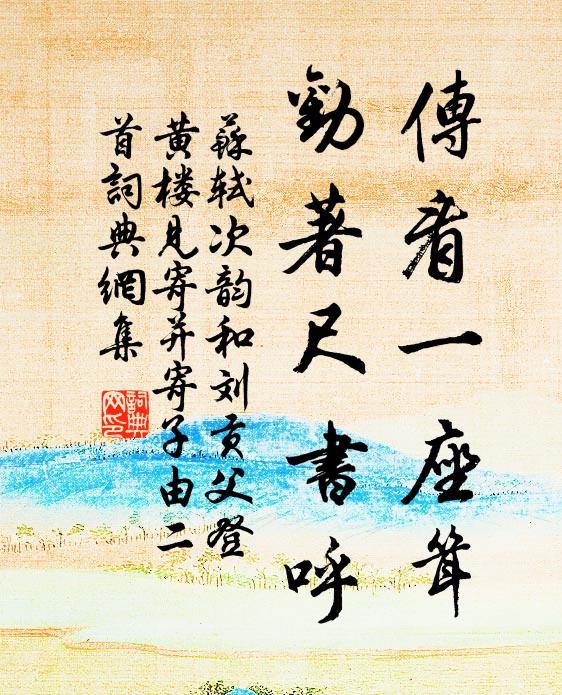 傳看一座耸
勸著尺書呼
蘇軾次韵和刘贡父登
黄楼見寄并寄子由二
首詞典網集
詞典网印